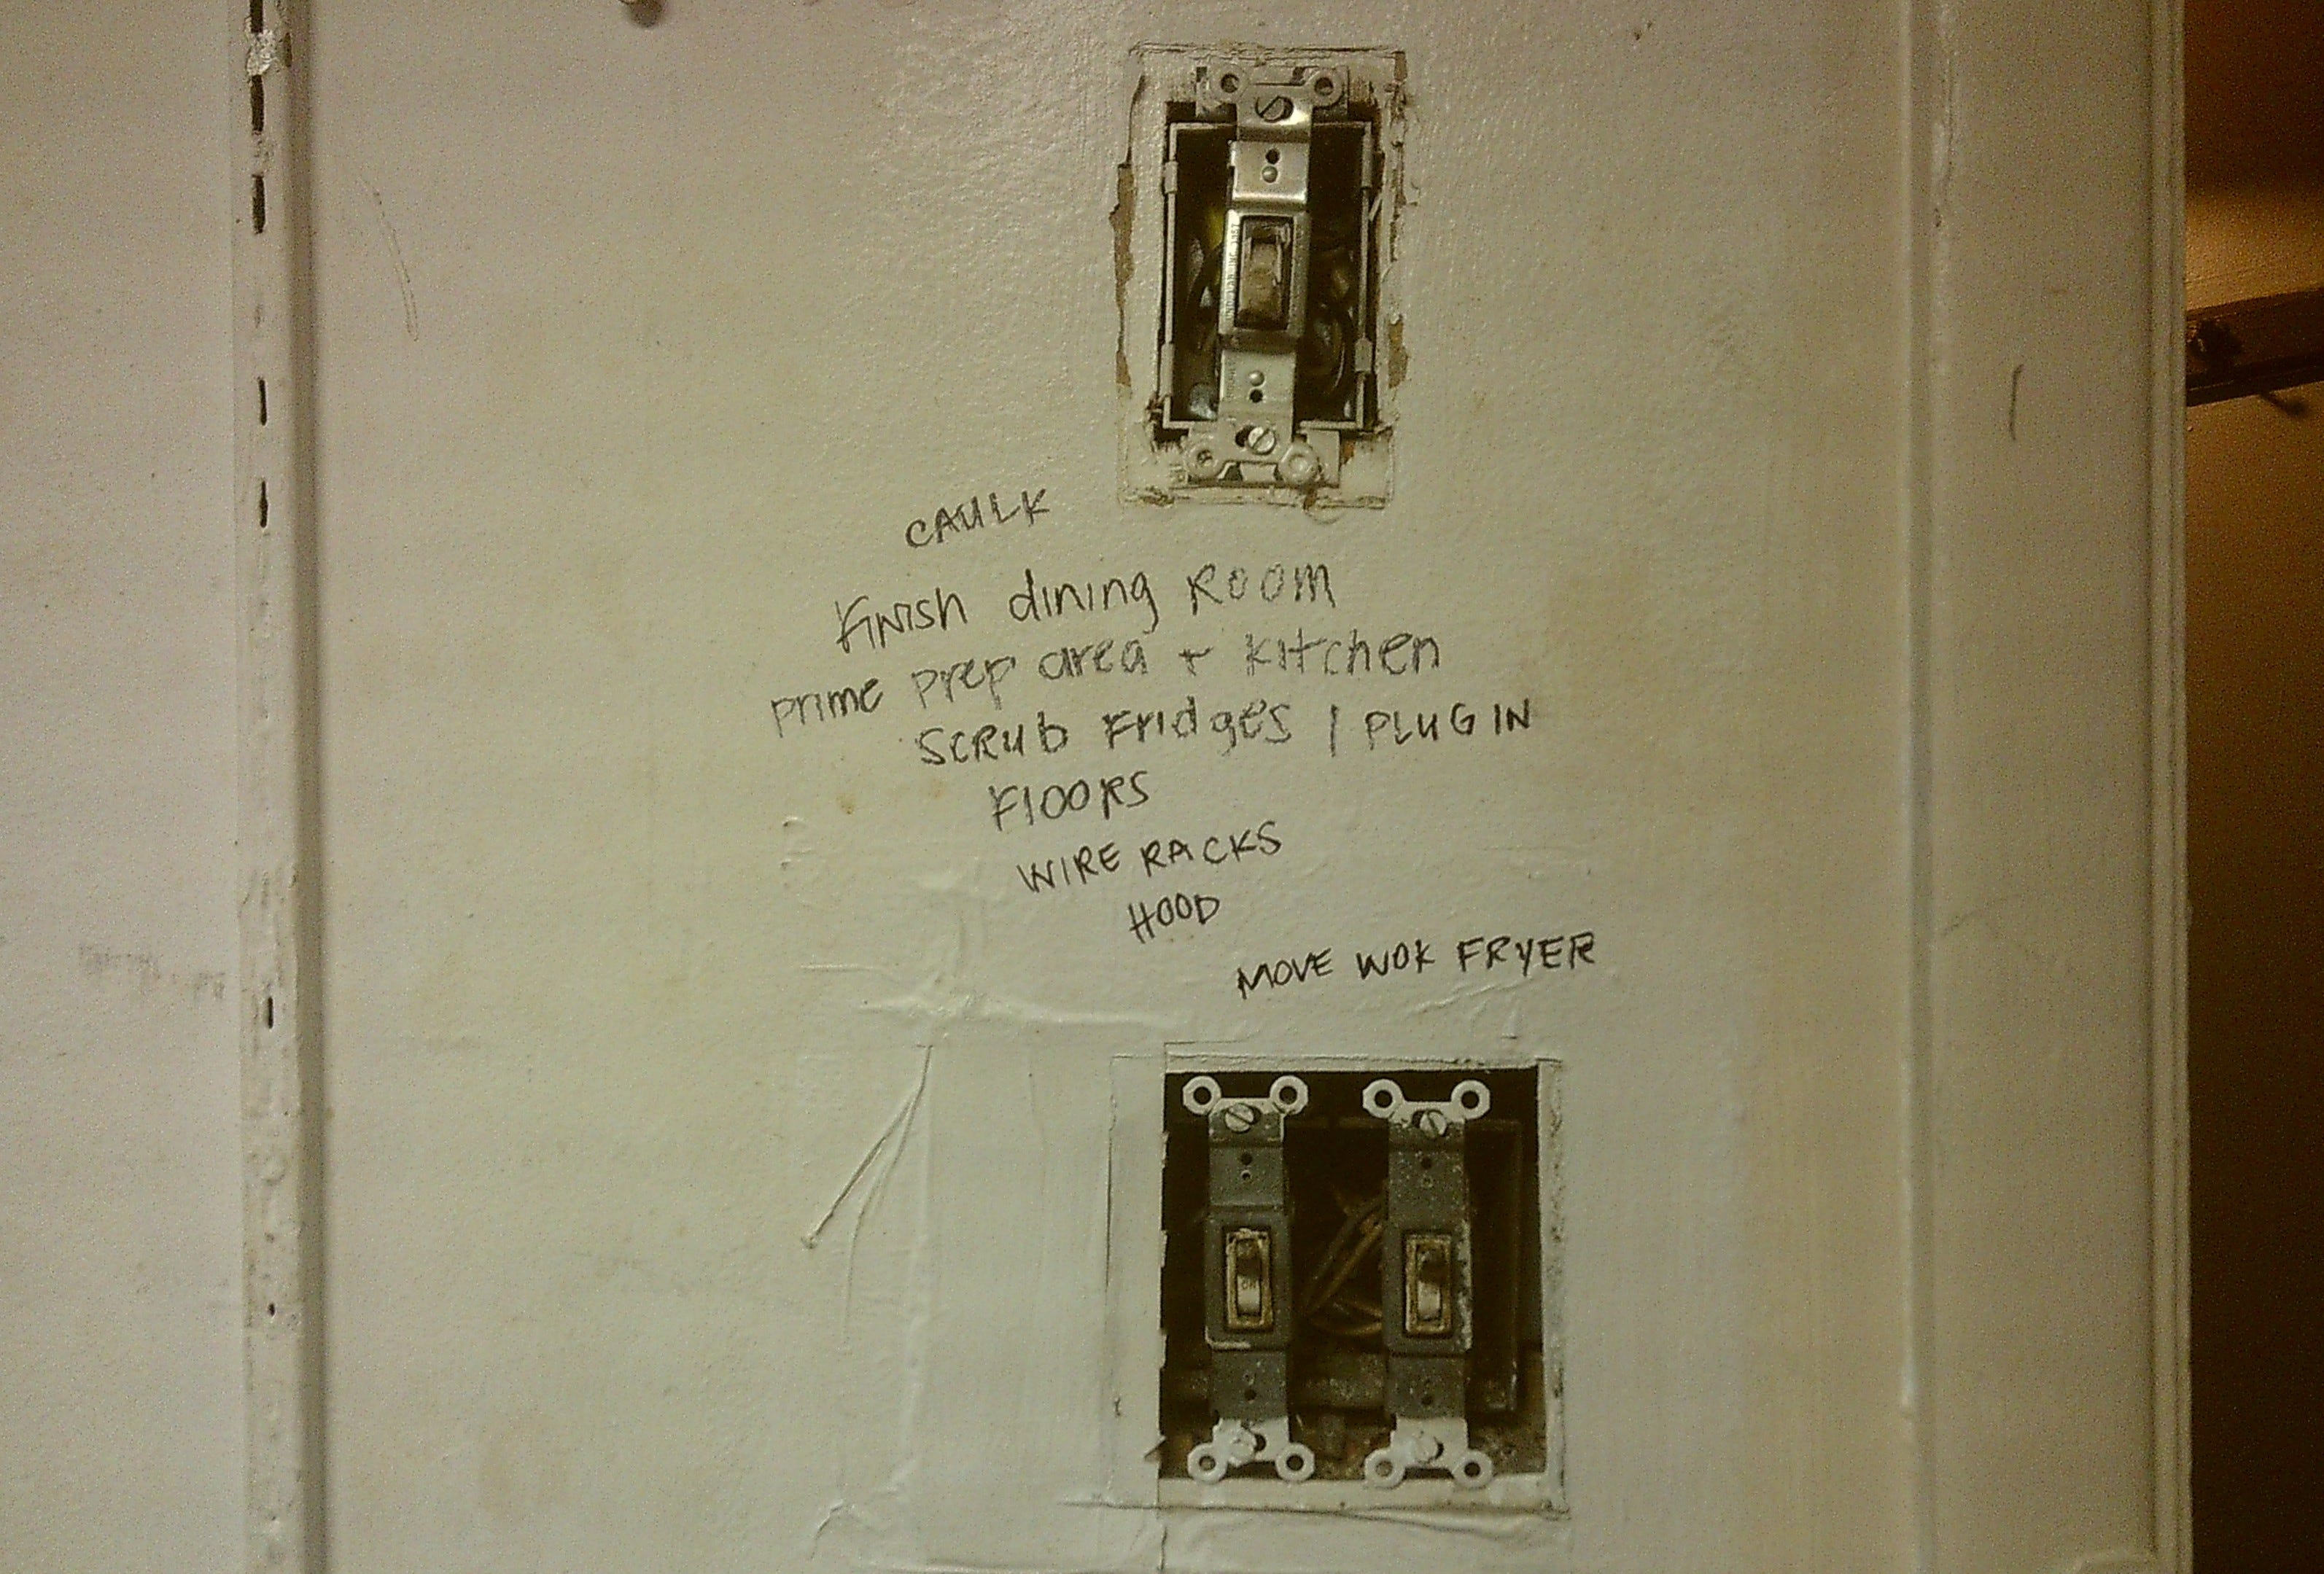 CAULK
Finish dining Room
prime prep area + kitchen
SCRub Fridges / PLUG IN
Floors
WIRE RACKS
HOOD
MOVE WOK FRYER
ON